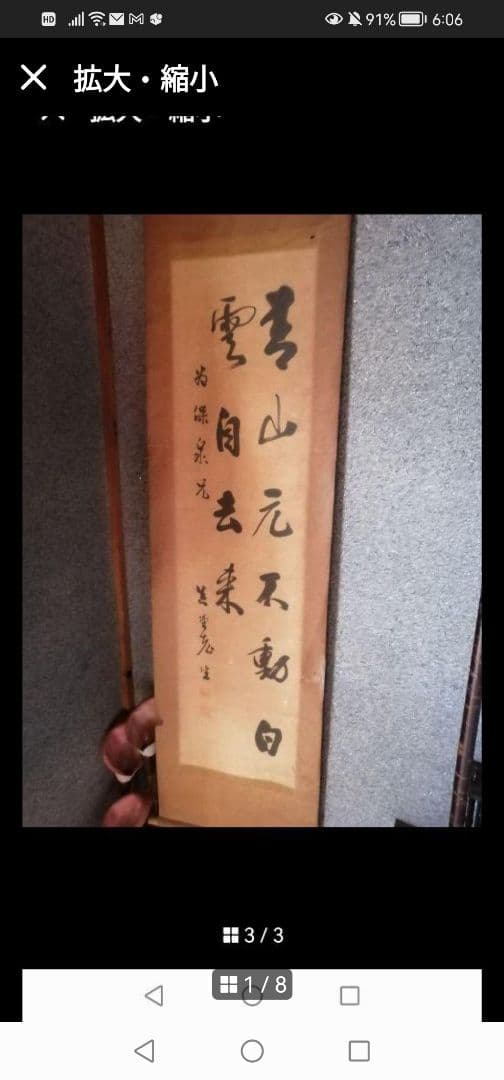 HD 91% 6:06
拡大・縮小
拡大・縮小
青山元不動白
雲自去来
為 泉兄
3 / 3
1 / 8